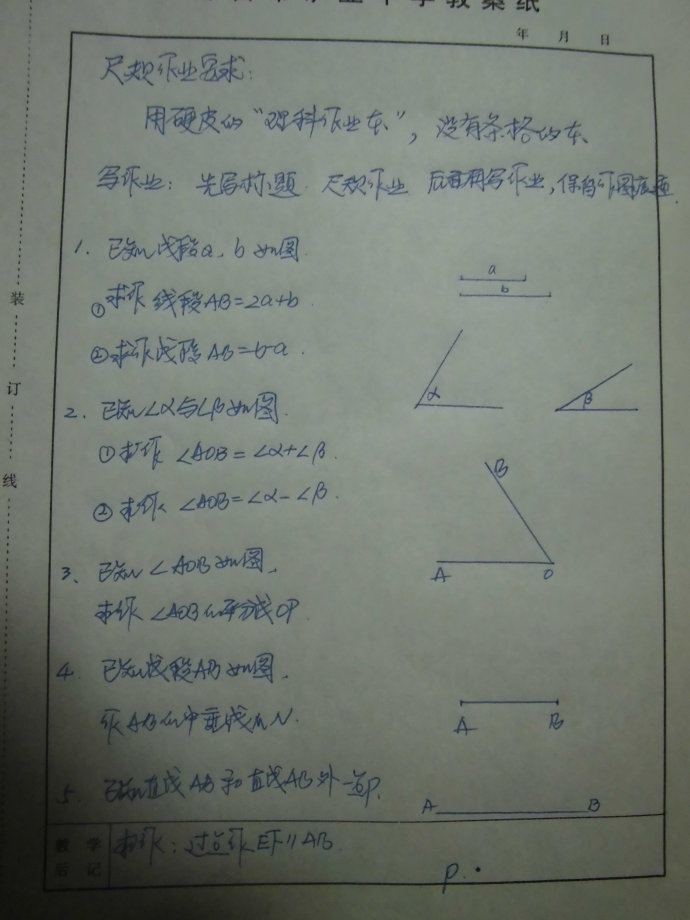 中学教案纸
年 月 日
尺规作业要求:
用硬皮的“理科作业本”, 没有条格的本
写作业: 先写标题 尺规作业 后面再写作业, 保留作图痕迹.
1. 已知线段a、b如图.
a
b
①求作线段AB=2a+b
②求作线段AB=b-a.
2. 已知∠α与∠β如图.
α β
①求作 ∠AOB=∠α+∠β.
②求作 ∠AOB=∠α-∠β.
B
A O
3. 已知∠AOB如图,
求作∠AOB的平分线OP.
4. 已知线段AB如图,
作AB的中垂线MN.
A B
5. 已知直线AB和直线AB外一点P.
A B
求作: 过点作EF∥AB
P.
装
订
线
教 学
后 记